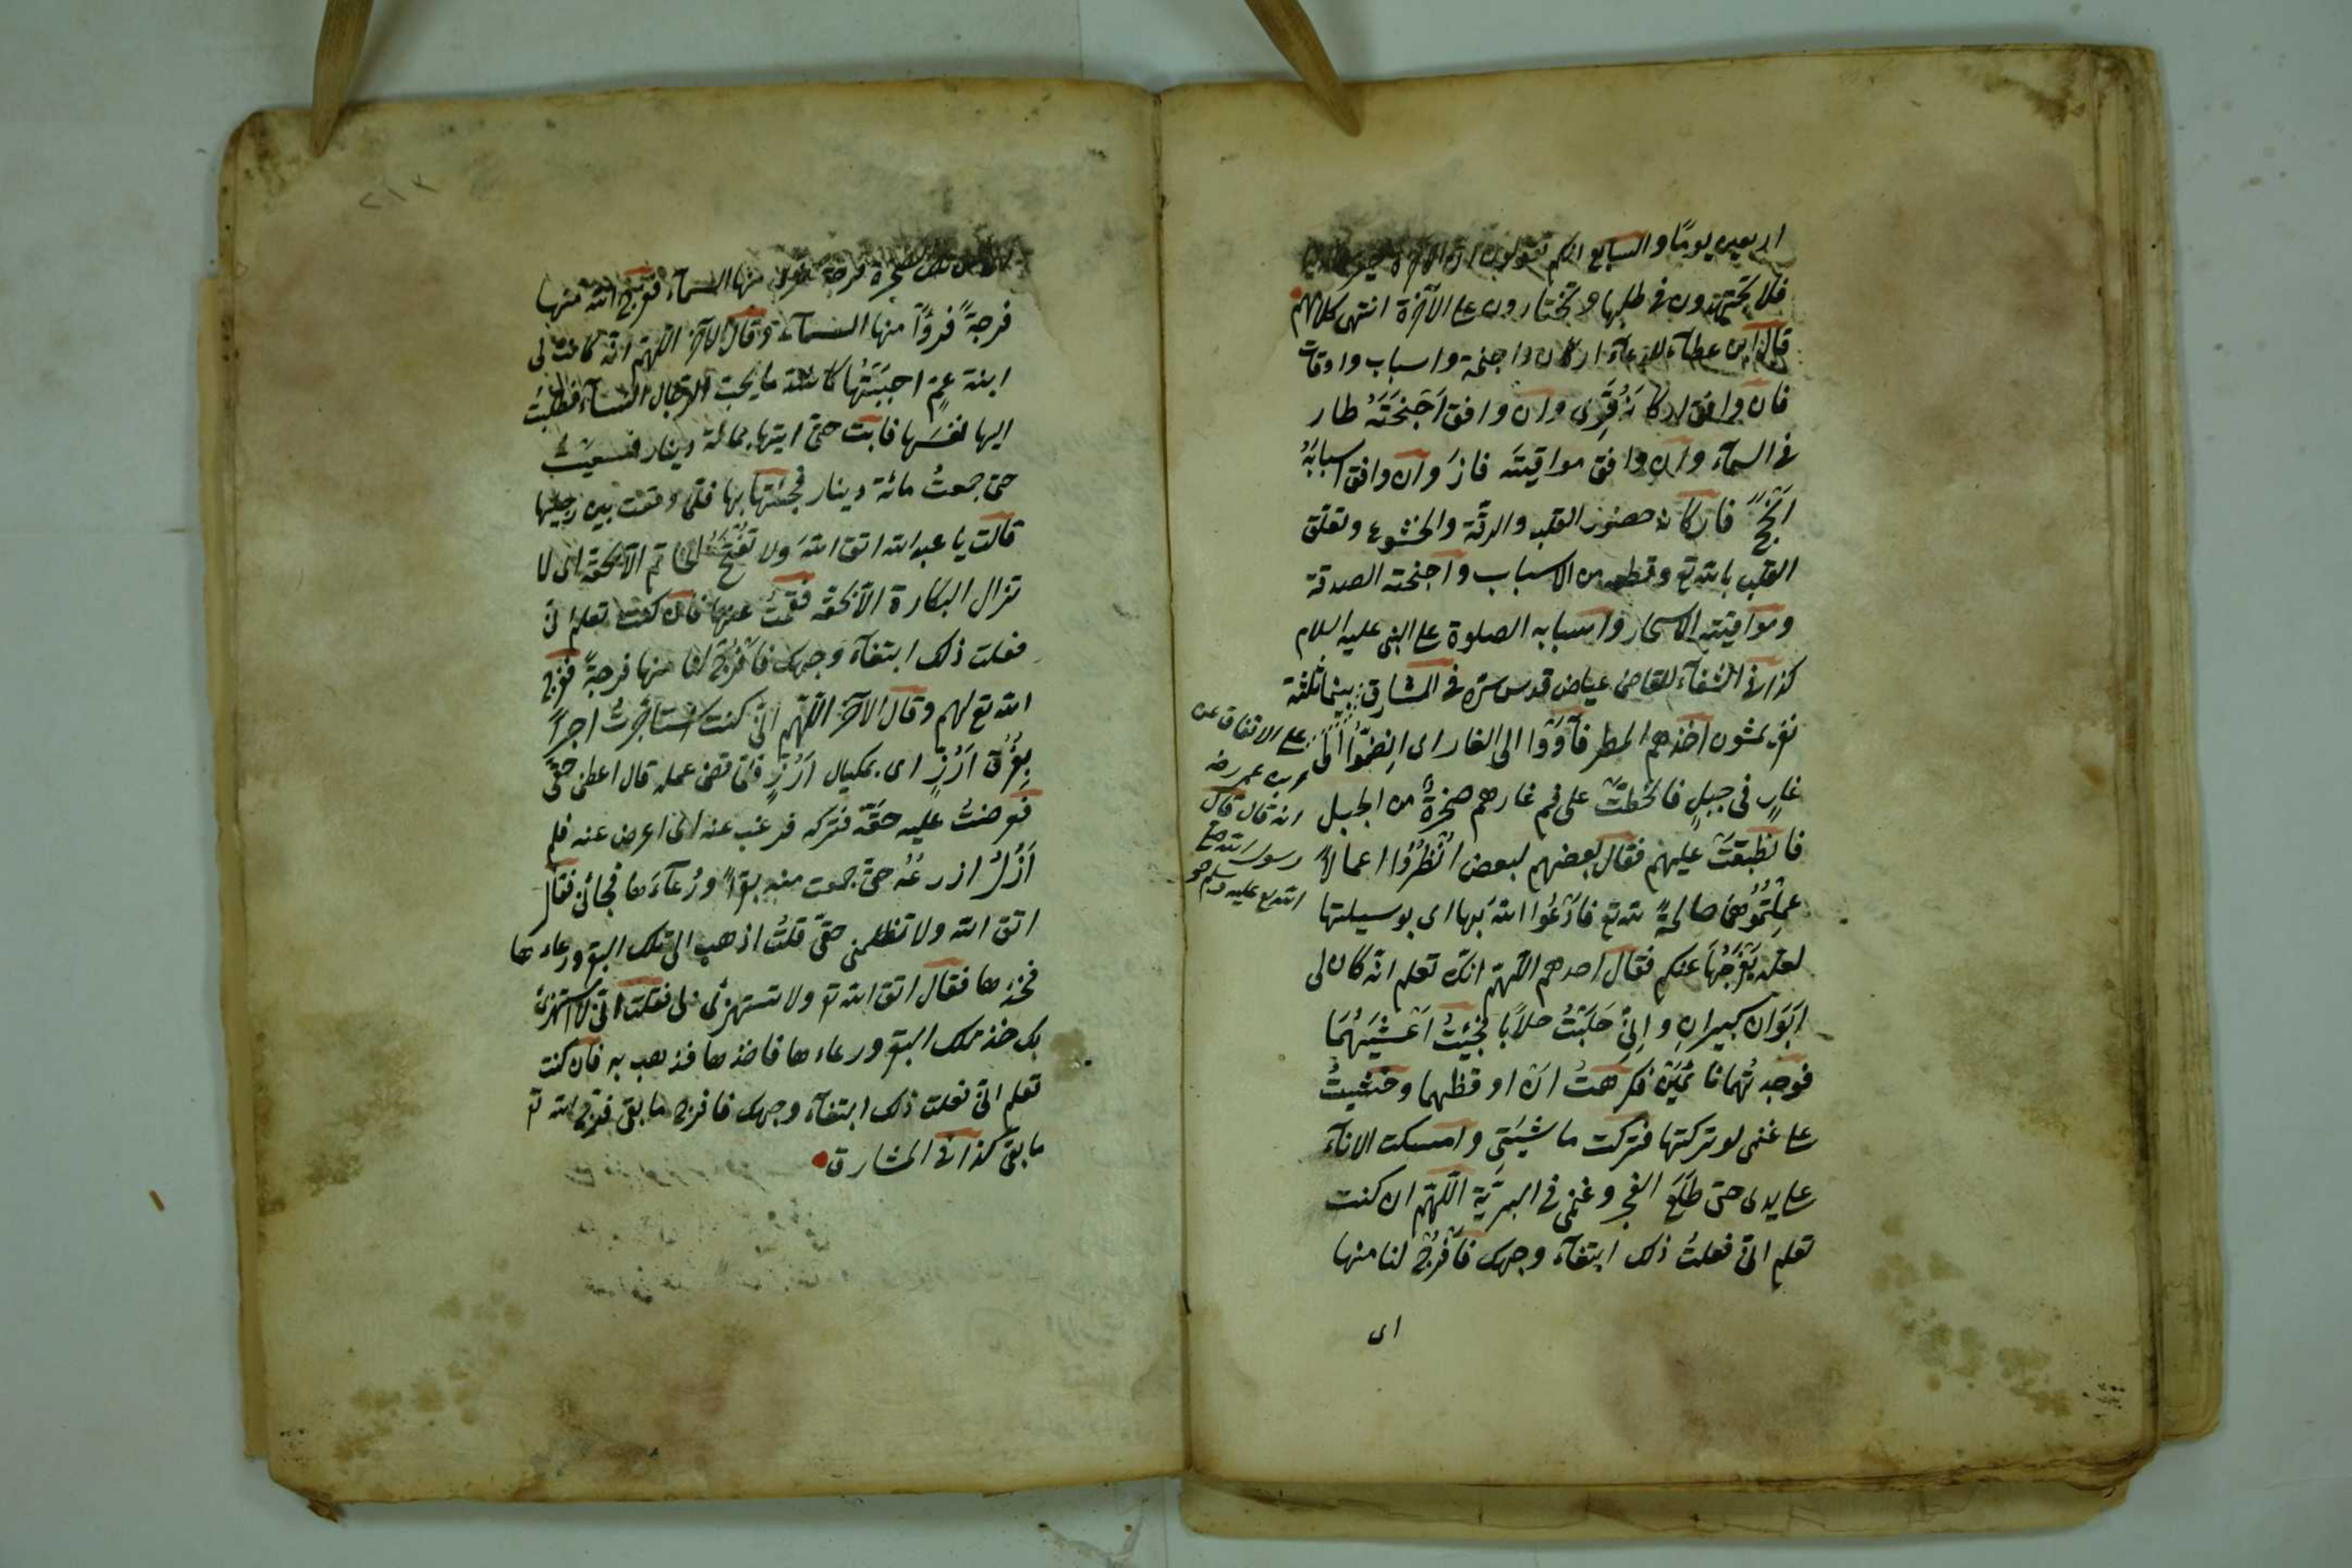 اربعين يومًا والسابع انكم تقولون ان الآخرة خير
فلا تجتهدون فى طلبها وتختارون على الآخرة انتهى كلامهم
قال ابن عطآء للدعآء اركان واجنحة واسباب واوقات
فان وافق اركانَهُ قَوِىَ وان وافق اَجْنِحَتَهُ طار
فى السمآء وان وافق مواقيتَه فازَ وان وافق اسبابَهُ
اَنْجَحَ فاركانه حضور القلب والرقّة والخشوع وتعلّق
القلب بالله تع وقطعه من الاسباب واجنحته الصدقة
ومواقيته الاسحار واسبابه الصلوة على النبى عليه السلام
كذا فى الشفآء للقاضى عياض قدس سره فى المشارق بينما ثلثة
نفر يمشون اخذهم المطر فآوَوْا الى الغار اى اِنضَمُّوا الى
غارٍ فى جبلٍ فانحطّتْ على فم غارهم صخرةٌ من الجبل
فانطبقَتْ عليهم فقال بعضهم لبعض انْظُرُوا اعمالاً
عمِلْتُمُوْهُنَّ صالحةً لله تع فادْعُوا اللهَ بها اى بوسيلتها
لعلّه يَفْرُجُهَا عنكم فقال احدهم اللّهمّ انك تعلم انّه كان لى
اَبَوَان كبيرانِ واِنِّى حَلَبْتُ حلابًا فجئتُ اَعْشِيَهُمَا
فوجدتُهما نائمَيْن فكرهتُ ان اوقظهما وخشيتُ
على غنمى لو تركتها فتركت ماشيَتِى وامسكت الاناء
على يدى حتى طَلَعَ الفجر وغنمى فى البريّة اللّهمّ ان كنت
تعلم انّى فعلتُ ذلك ابتغآء وجهك فَافْرُجْ لنا منها
اى
على الاتفاق عن
بن عمر رضـ
انه قال قال
رسول الله صلى
الله تع عليه وسلم
تلك الصخرة فرجة نرى منها السمآء ففرّج الله منها
فرجةً فرؤا منها السمآء وقال الآخر اللّهمّ انّه كانت لى
ابنة عمٍّ احبَبْتُها كاشدّ ما يحبّ الرّجال النسآء فطلبتُ
اليها نفسَها فابت حتى آتيها بمائة دينار فسعيْتُ
حتى جمعتُ مائة دينار فجئتها بها فلمّا وقعت بين رجليها
قالت يا عبد الله اتق اللهَ ولا تَفْتَحِ الخاتم الاّ بحقّه اى لا
تزال البكارة الاّ بحقّه فقمْتُ عنها فان كنت تعلم انّى
فعلت ذلك ابتغآء وجهك فَافْرُجْ لنا منها فرجةً ففرّج
الله تع لهم وقال الآخر اللّهمّ انّى كنت استأجرتُ اجيراً
بِفَرْقِ اَرُزٍّ اى بمكيال اَرُزٍّ فلمّا قضى عمله قال اعطنى حقّى
فعرضتُ عليه حقّه فتركه فرغب عنه اى اعرض عنه فلم
اَزَلْ ازرعُهُ حتى جمعت منه بقراً ورُعآءَها فجاءنى فقال
اتق الله ولا تظلمنى حقّى قلتُ اذهب الى تلك البقر ورعاءها
فخذها فقال اتق الله تع ولا تستهزئ بى فقلت انّى لا استهزئ
بك خذ تلك البقر ورعاءها فاخذها فذهب به فان كنت
تعلم انّى فعلت ذلك ابتغآء وجهك فافرج ما بقى ففرّج الله تع
ما بقى كذا فى المشارق